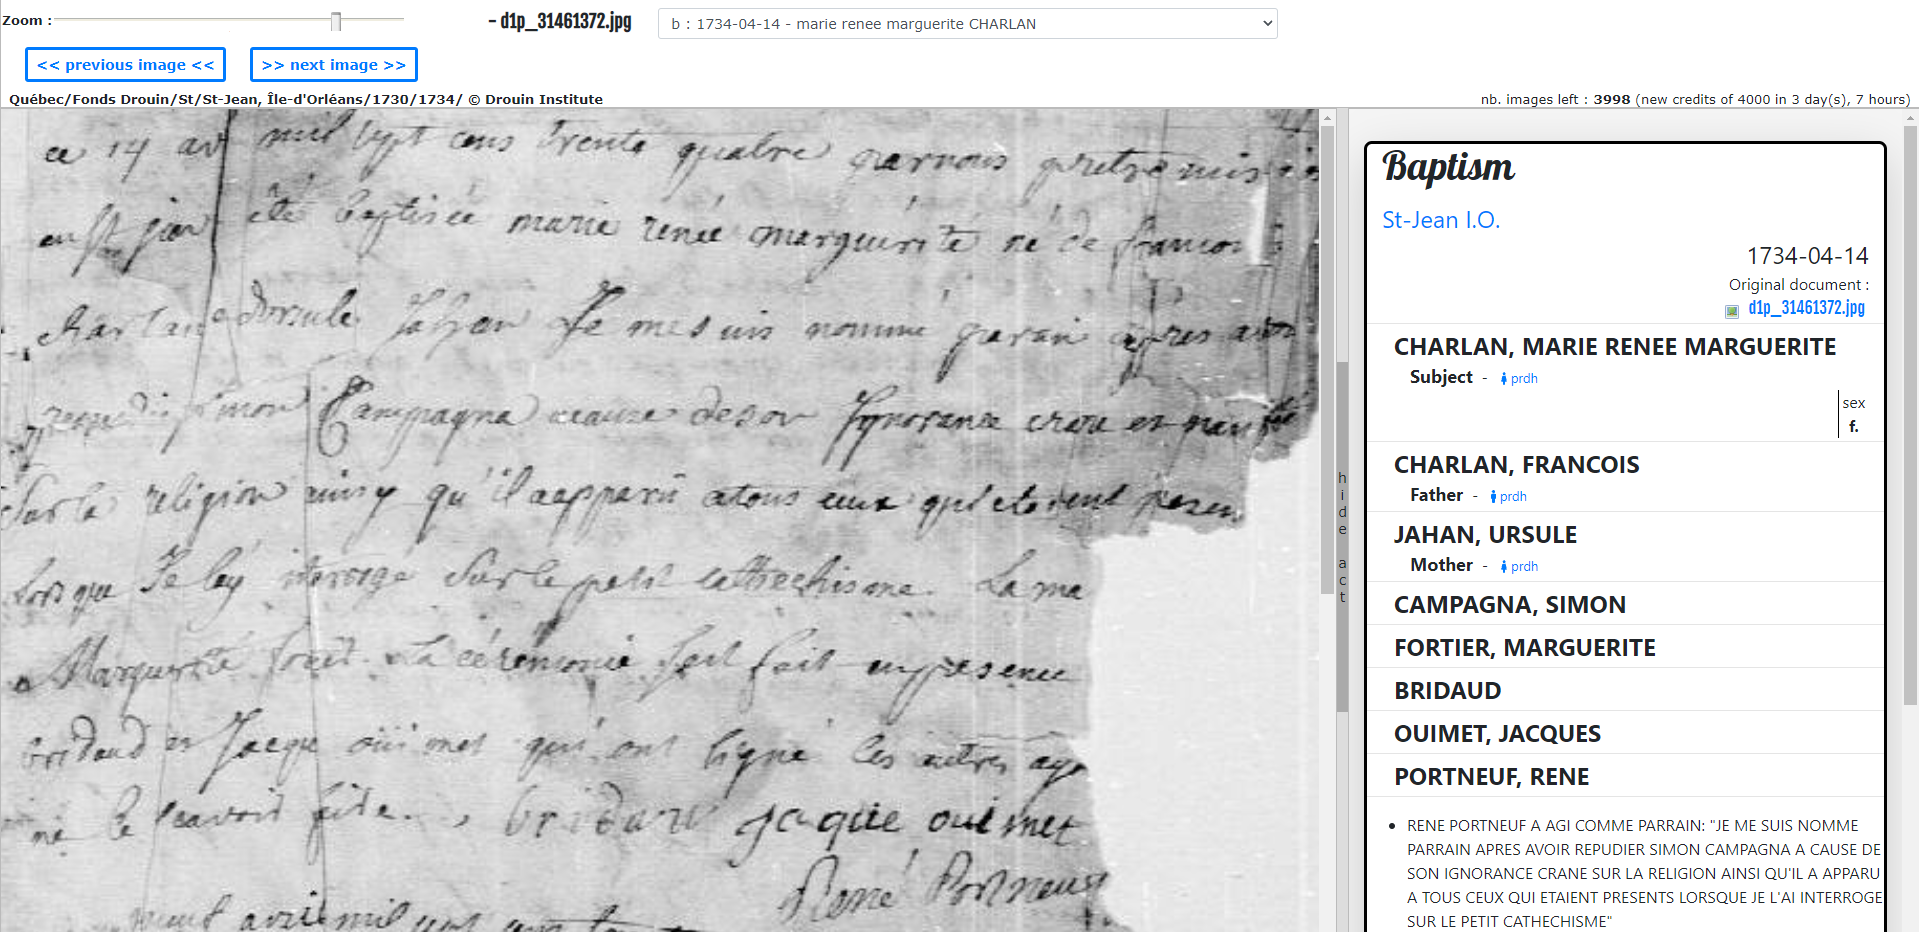 Zoom :
– d1p_31461372.jpg
b : 1734-04-14 - marie renee marguerite CHARLAN
<< previous image <<
>> next image >>
Québec/Fonds Drouin/St/St-Jean, Île-d'Orléans/1730/1734/ © Drouin Institute
nb. images left : 3998 (new credits of 4000 in 3 day(s), 7 hours)
ce 14 av mil sept cens trente quatre par nous pretre missi
en st jean été baptisée marie renée marguerite né de francois
charlan et dursule Jahan Je me suis nommé parain apres avoir
repudié simon Campagna acause de son Ignorance crane et
sur la religion ainsy qu'il aapparu atous ceux qui etoient presen
Lors que Je lay interrogé sur le petit cathechisme. La ma
Marguerite forti. La cérémonie fait en presence
bridaud et Jacque ouimet qui ont signé les autres ay
ne le scavoir fere. bridaud jaque ouimet
René Portneuf
avril mil sept cens
hide act
Baptism
St-Jean I.O.
1734-04-14
Original document :
d1p_31461372.jpg
CHARLAN, MARIE RENEE MARGUERITE
Subject - prdh
sex
f.
CHARLAN, FRANCOIS
Father - prdh
JAHAN, URSULE
Mother - prdh
CAMPAGNA, SIMON
FORTIER, MARGUERITE
BRIDAUD
OUIMET, JACQUES
PORTNEUF, RENE
• RENE PORTNEUF A AGI COMME PARRAIN: "JE ME SUIS NOMME
PARRAIN APRES AVOIR REPUDIER SIMON CAMPAGNA A CAUSE DE
SON IGNORANCE CRANE SUR LA RELIGION AINSI QU'IL A APPARU
A TOUS CEUX QUI ETAIENT PRESENTS LORSQUE JE L'AI INTERROGE
SUR LE PETIT CATHECHISME"